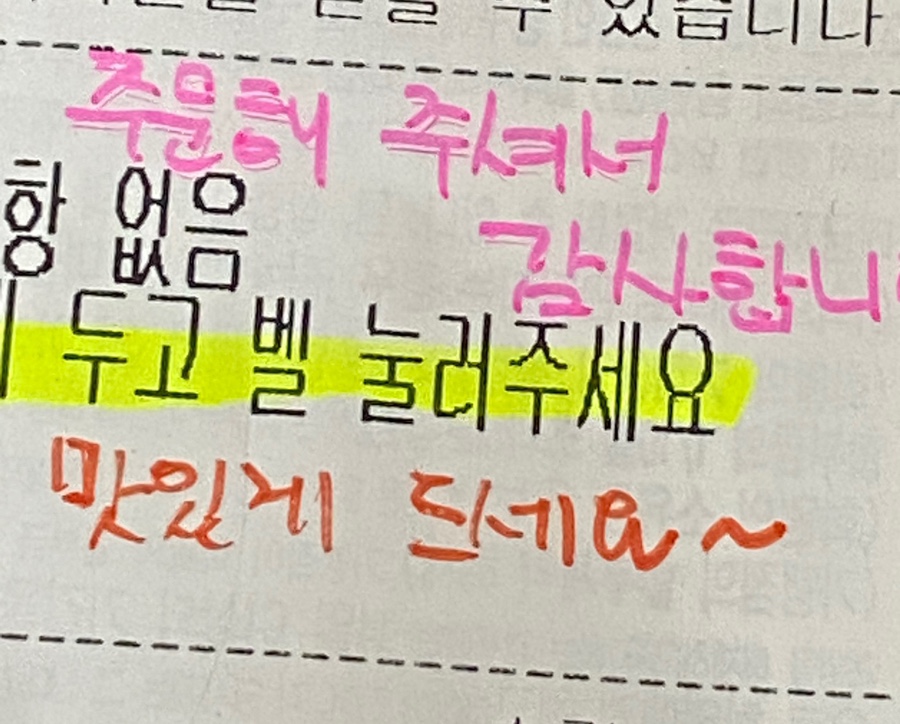 수 있습니다
주문해 주셔서
항 없음
감사합니
두고 벨 눌러주세요
맛있게 드세요~